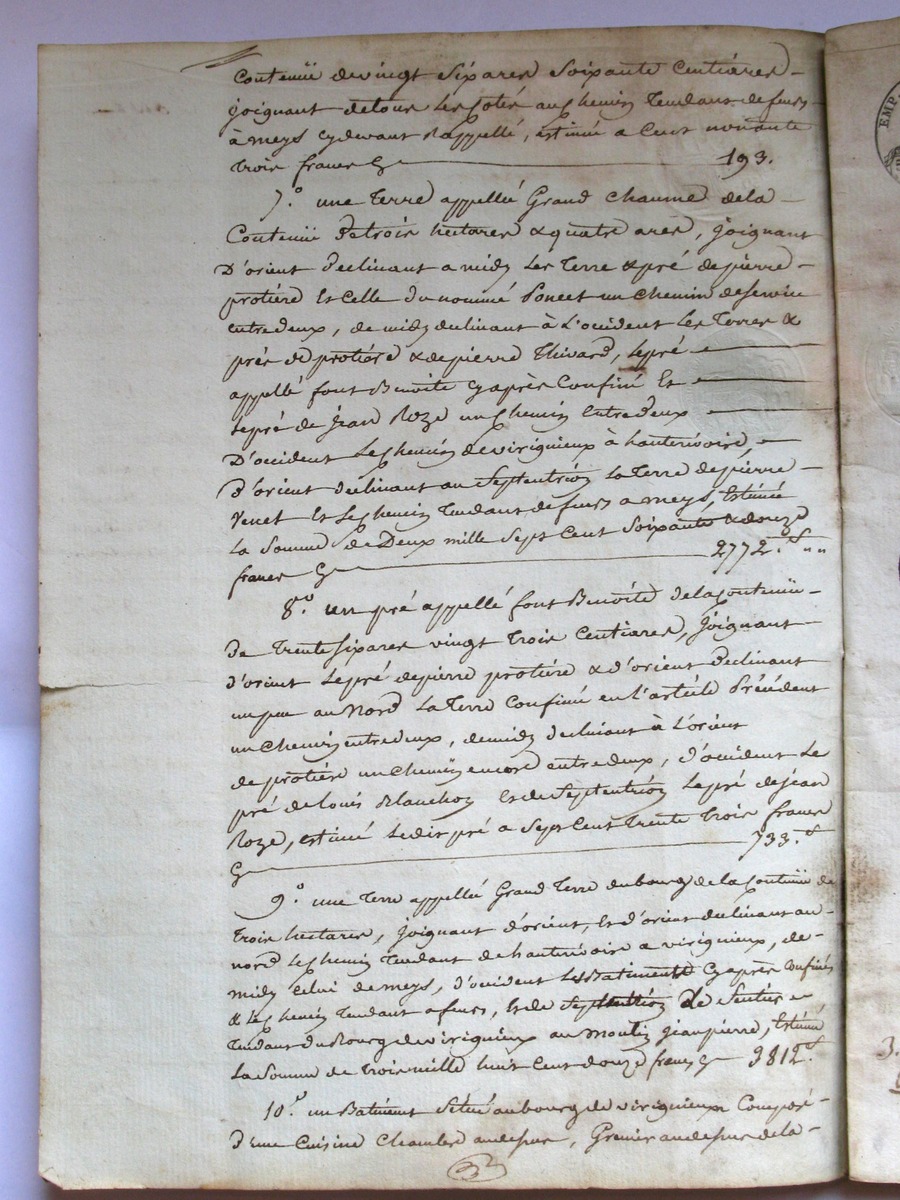 Contenüe de vingt six ares soixante Centiares –
joignant de tous les Cotés au Chemin Tendant de feurs
à meys cy devant Rappellé, estimée a Cent nonante
trois francs Cy 193.
7.° une Terre appellée Grand Chaume de la –
Contenüe De trois hectares & quatre ares, joignant
D'orient Declinant a midy Les Terre & pré de pierre –
protiére Et Celle du nommé Poncet un Chemin de service
entredeux, de midy declinant à L'occident Les Terres &
prés de protiére & de pierre Thivard, le pré
appellé font Benoite Cy après Confiné Et
le pré de Jean Roze un Chemin entredeux
D'occident Le Chemin de virignieux à hauterivoire,
d'orient declinant au Septentrion la Terre de pierre –
Venet Et Le Chemin Tendant de feurs a meys, Estimée
La Somme de Deux mille Sept Cent Soixante & douze
francs Cy 2772.f " "
8.° un pré appellé font Benoite de la Contenüe –
De Trente Six ares vingt Trois Centiares, joignant
d'orient Le pré de pierre protiére & d'orient Declinant
un peu au Nord La Terre Confiné en L'article Précédent
un Chemin entredeux, de midy declinant à L'orient
de protiére un Chemin encore entredeux, d'occident Le
pré de Louis Blanchon Et de Septentrion Le pré de jean
Roze, estimé Ledit pré a Sept Cent Trente Trois francs
Cy 733.f
9.° une Terre appellée Grand Terre du bourg de la Contenüe de
Trois hectares, joignant d'orient, Et d'orient declinant au –
nord Le Chemin Tendant de hauterivoire a virignieux, de –
midy Celui de meys, d'occident Les Batiments Cy après Confinés
& Le Chemin Tendant a feurs, Et de Septentrion Le Sentier
Tendant du Bourg de virignieux au Moulin jeanpierre, Estimée
La Somme de Trois mille huit Cent douze francs Cy 3812.f
10.° un Batiment Situé au bourg de virignieux Composé –
d'une Cuisine Chambre au dessus, Grenier au dessus de la –
EMP.
3.